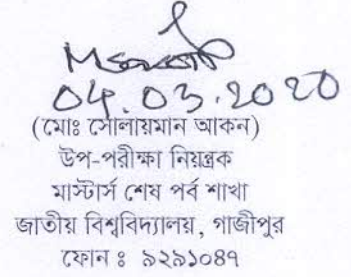 04.03.2020
(মোঃ সোলায়মান আকন)
উপ-পরীক্ষা নিয়ন্ত্রক
মাস্টার্স শেষ পর্ব শাখা
জাতীয় বিশ্ববিদ্যালয়, গাজীপুর
ফোন ঃ ৯২৯১০৪৭